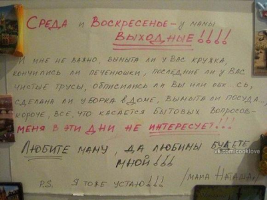 Среда и Воскресенье - у мамы
ВЫХОДНЫЕ!!!!
И мне не важно, вымыта ли у Вас кружка,
кончились ли печенюшки, последние ли у Вас
чистые трусы, описались ли Вы или
сделана ли уборка в доме, вымыта ли посуда...
короче все, что касается бытовых вопросов -
МЕНЯ В ЭТИ ДНИ НЕ ИНТЕРЕСУЕТ!...
Любите маму, да любимы БУДЕТЕ
МНОЙ!!!
P.S. Я тоже устаю!!! /мама